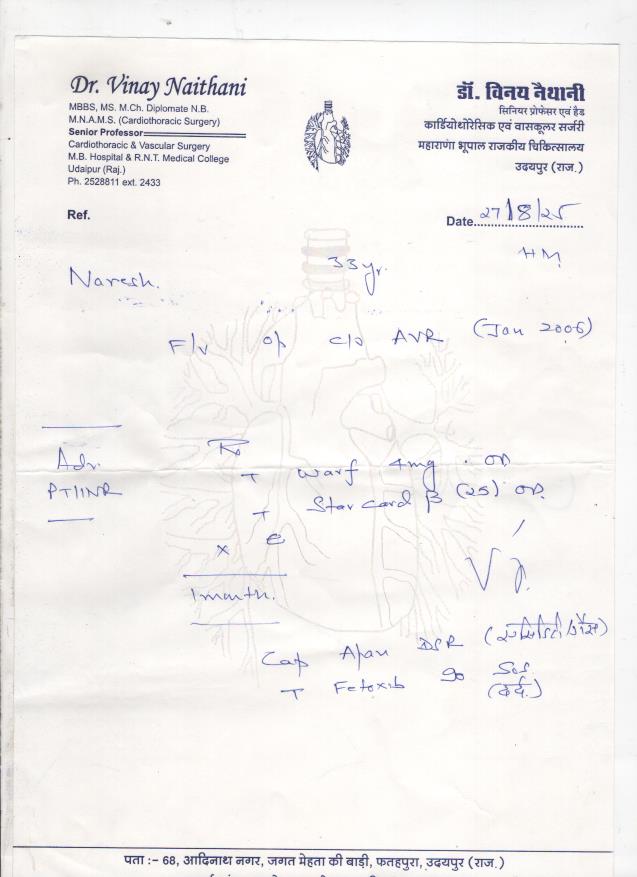 Dr. Vinay Naithani
MBBS, MS. M.Ch. Diplomate N.B.
M.N.A.M.S. (Cardiothoracic Surgery)
Senior Professor
Cardiothoracic & Vascular Surgery
M.B. Hospital & R.N.T. Medical College
Udaipur (Raj.)
Ph. 2528811 ext. 2433
डॉ. विनय नैथानी
सिनियर प्रोफेसर एवं हैड
कार्डियोथोरेसिक एवं वासकूलर सर्जरी
महाराणा भूपाल राजकीय चिकित्सालय
उदयपुर (राज.)
Ref.
Date 27/8/25
HM
Naresh. 33 yr.
F/v op c/o AVR (Jan 2006)
Adv. Rx
PT/INR T Warf 4mg . OD
T Starcard β (25) OD.
x
1 month.
Cap Apan DSR
T Fetoxib 90 SOS
(दर्द)
पता :- 68, आदिनाथ नगर, जगत मेहता की बाड़ी, फतहपुरा, उदयपुर (राज.)